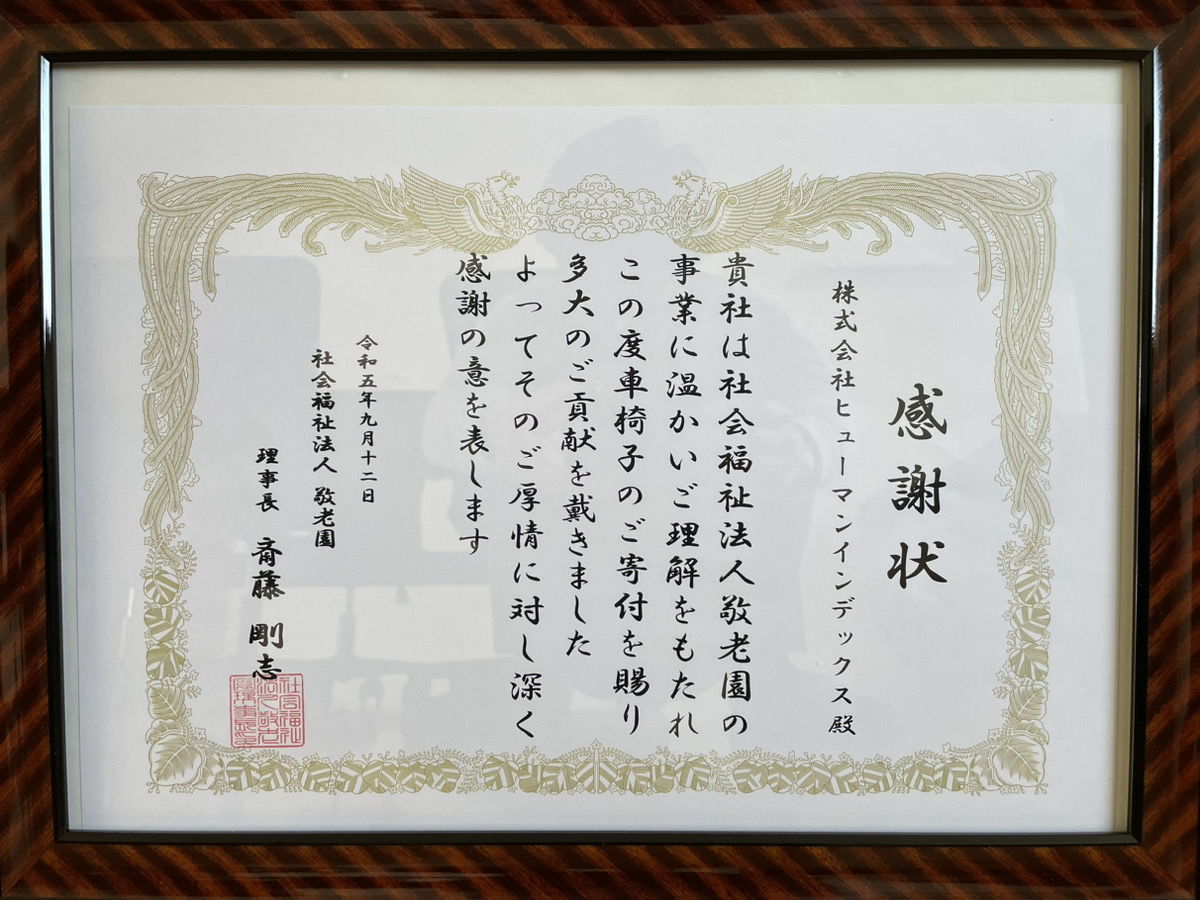 感謝状
株式会社ヒューマンインデックス殿
貴社は社会福祉法人敬老園の
事業に温かいご理解をもたれ
この度車椅子のご寄付を賜り
多大のご貢献を戴きました
よってそのご厚情に対し深く
感謝の意を表します
令和五年九月十二日
社会福祉法人 敬老園
理事長 斎藤 剛志